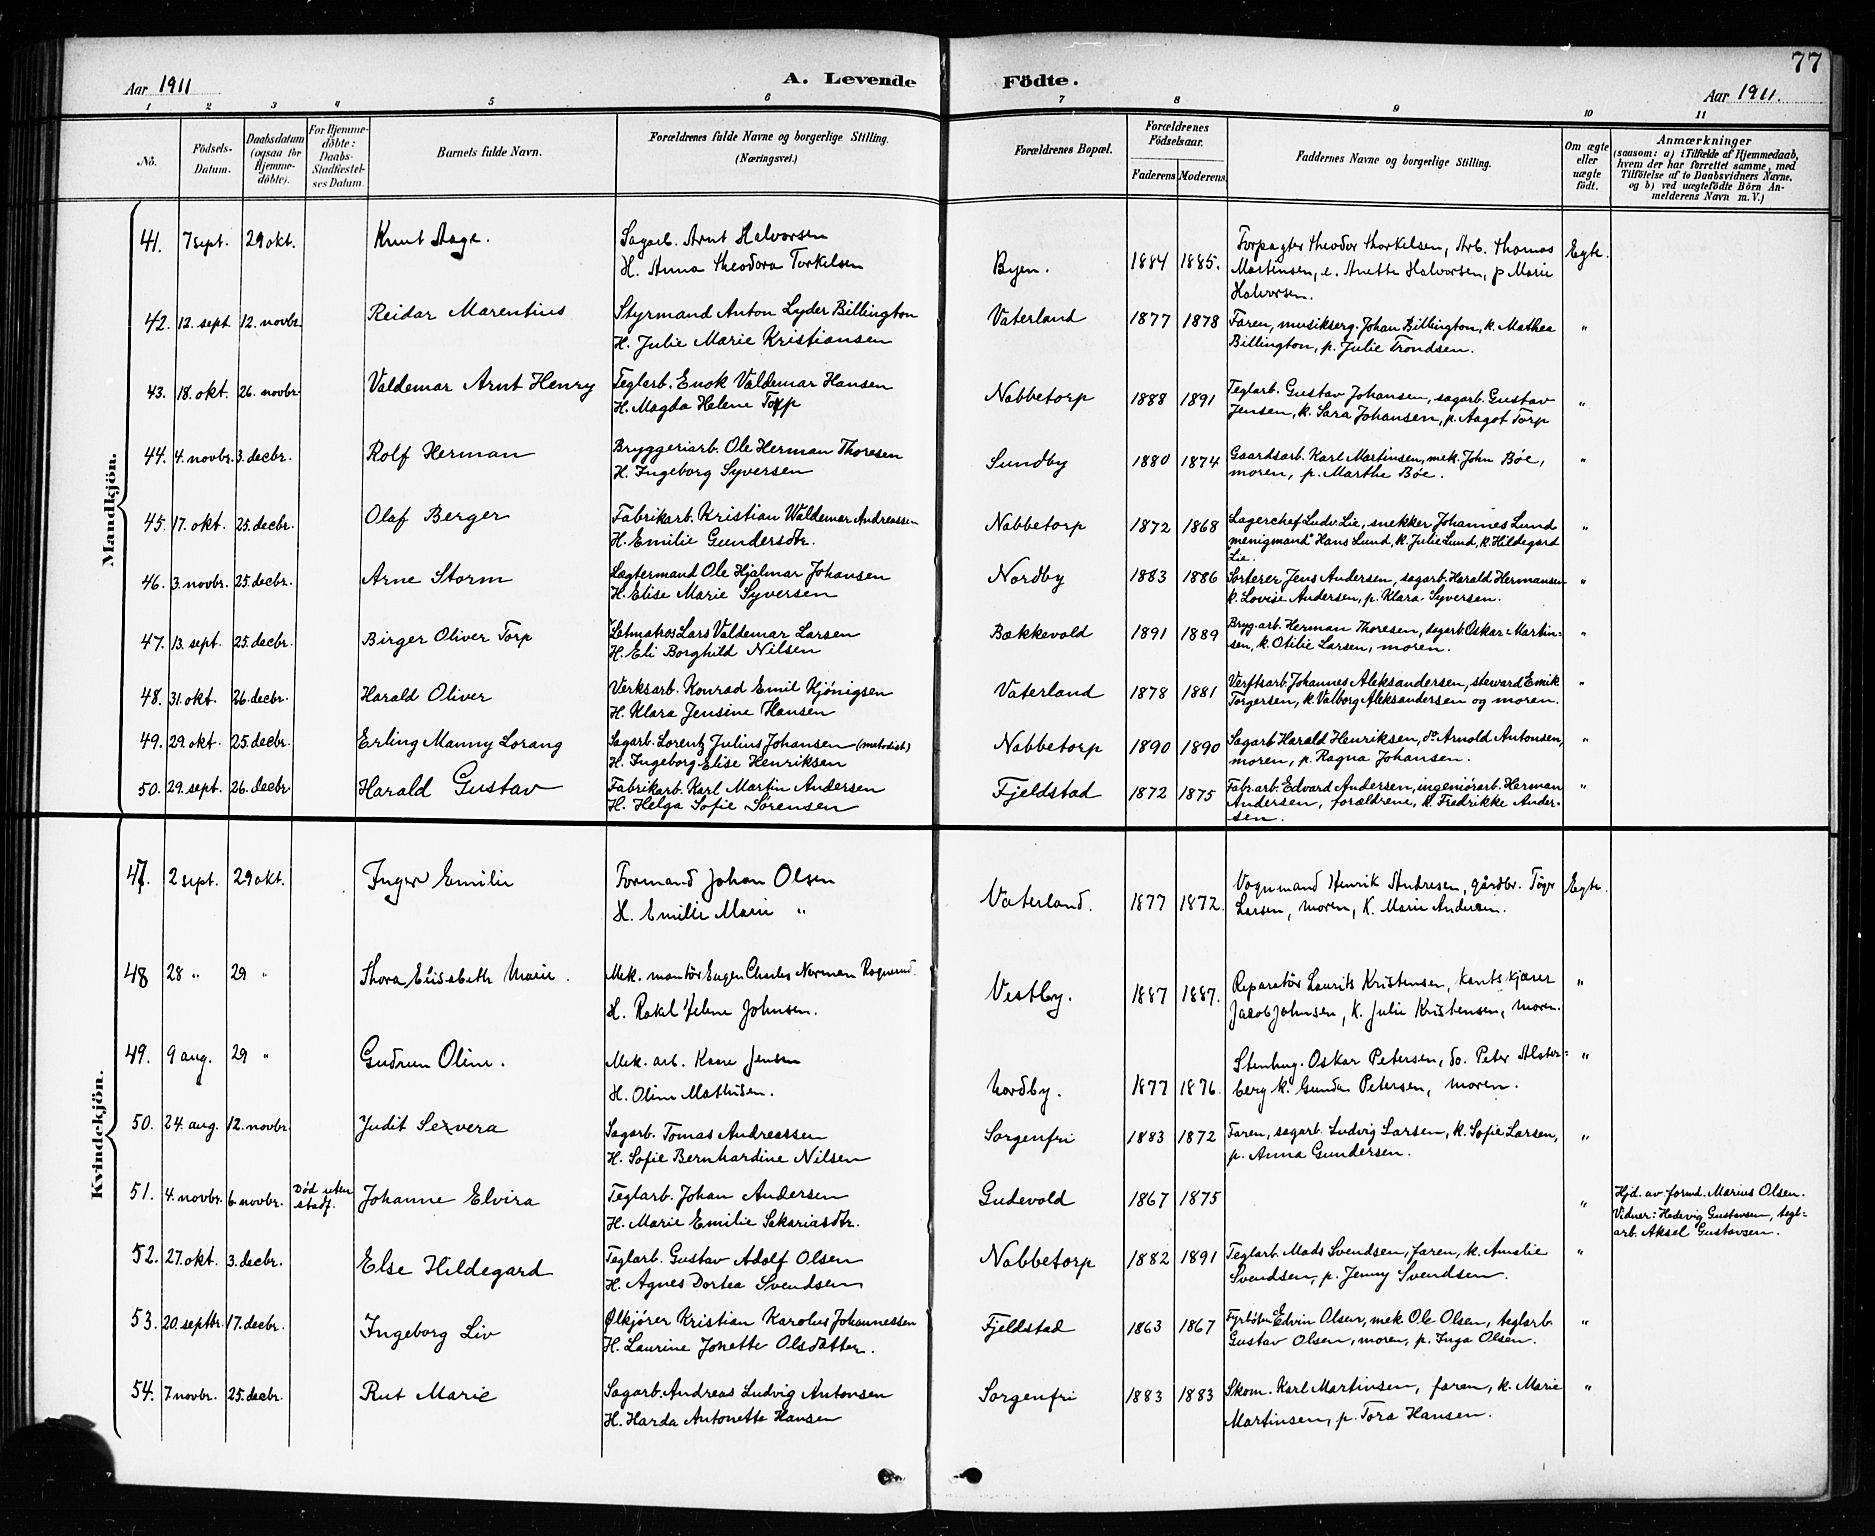 77
Aar 1911
A. Levende
Födte.
Aar 1911.
1 2 3 4 5 6 7 8 9 10 11
No.
Födsels-Datum.
Daabsdatum (ogsaa for Hjemme-döbte).
For Hjemme-döbte: Daabs-Stadfestel-ses Datum.
Barnets fulde Navn.
Forældrenes fulde Navne og borgerlige Stilling.
(Næringsvei.)
Forældrenes Bopæl.
Forældrenes Födselsaar.
Faderens Moderens
Faddernes Navne og borgerlige Stilling.
Om ægte eller uægte födt.
Anmærkninger
(saasom: a) i Tilfælde af Hjemmedaab,
hvem der har forrettet samme, med
Tilföielse af to Daabsvidners Navne.
og b) ved uægtefödte Börn An-
melderens Navn m. V.)
Mandkjön.
41. 7 sept. 29 okt. Knut Aage. Sagarb. Arnt Halvorsen
H. Anna Theodora Torkelsen
Byen. 1884 1885. Forpagter Theodor Thorkelsen, Arb. Thomas
Martinsen, e. Anette Halvorsen, p Marie
Halvorsen. Egte.
42. 12. sept 12. novbr. Reidar Marentius Styrmand Anton Lyder Billington
H. Julie Marie Kristiansen
Vaterland 1877 1878 Faren, musikserg. Johan Billington, k. Mathea
Billington, p. Julie Trondsen. "
43. 18. okt. 26. novbr. Valdemar Arnt Henry Teglarb. Enok Valdemar Hansen
H. Magda Helene Torp
Nabbetorp 1888 1891 Teglarb. Gustav Johansen, sagarb. Gustav
Jensen, k. Sara Johansen, p. Aagot Torp "
44. 4. novbr. 3. decbr. Rolf Herman Bryggeriarb. Ole Herman Thoresen
H. Ingeborg Syversen
Sundby 1880 1874 Gaardsarb. Karl Martinsen, mek. John Bøe,
moren, p. Marthe Bøe. "
45. 17. okt. 25. decbr. Olaf Berger Fabrikarb. Kristian Waldemar Andreassen
H. Emilie Gundersdtr.
Nabbetorp 1872 1868 Lagerchef Ludv. Lie, snekker Johannes Lund
menigmand Hans Lund, k. Julie Lund, k. Hildegard
Lie "
46. 3. novbr. 25. decbr. Arne Storm Lagtermand Ole Hjalmar Johansen
H. Elise Marie Syversen
Nordby 1883 1886 Sorterer Jens Andersen, sagarb. Harald Hermansen
k. Lovise Andersen, p. Klara Syversen. "
47. 13. sept. 25. decbr. Birger Oliver Torp Letmatros Lars Valdemar Larsen
H. Eli Borghild Nilsen
Bækkevold 1891 1889 Bryg. arb. Herman Thoresen, Oskar Martin-
sen, k. Otilie Larsen, moren. "
48. 31. okt. 26. decbr. Harald Oliver Verksarb. Konrad Emil Kjönigsen
H. Klara Jensine Hansen
Vaterland 1878 1881 Verftsarb. Johannes Aleksandersen, steward Emik
Torgersen, k. Valborg Aleksandersen og moren. "
49. 29. okt. 25. decbr. Erling Manny Lorang Sagarb. Lorentz Julius Johansen (metodist)
H. Ingeborg Elise Henriksen
Nabbetorp 1890 1890 Sagarb Harald Henriksen, do Arnold Antonsen,
moren, p. Ragna Johansen. "
50. 29. sept. 26. decbr. Harald Gustav Fabrikarb. Karl Martin Andersen
H. Helga Sofie Sørensen
Fjeldstad 1872 1875 Fabr. arb. Edvard Andersen, ingeniörarb. Herman
Andersen, forældrene, k. Fredrikke Ander-
sen. "
Kvindekjön.
47. 2 sept. 29 okt. Inger Emilie Formand Johan Olsen
H. Emilie Marie "
Vaterland. 1877 1872. Vognmand Henrik Andresen, gårdbr. Töger
Larsen, moren, K. Marie Andersen. Egte.
48 28 " 29 " Thora Elisabeth Marie. Mek. montör Eugen Charles Norman
H. Rakel Helene Johnsen.
Vestby. 1887 1887. Reparatör Laurits Kristensen, kantskjærer
Jacob Johnsen, K. Julie Kristensen, moren. "
49. 9 aug. 29 " Gudrun Oline. Mek. arb. Kaare Jensen
H. Oline Mathisen.
Nordby. 1877 1876. Stenhug. Oskar Petersen, do. Peter Alster-
berg k. Gunda Petersen, moren. "
50. 24. aug. 12. novbr. Judit Severa Sagarb. Tomas Andreassen
H. Sofie Bernhardine Nilsen
Sorgenfri 1883 1872 Faren, sagarb. Ludvig Larsen, k. Sofie Larsen,
p. Anna Gundersen. "
51. 4. novbr. 6. novbr. Død uten stadf. Johanne Elvira Teglarb. Johan Andersen
H. Marie Emilie Sakariasdtr.
Gudevold 1867 1875 " Hjd. av formd. Marius Olsen.
Vidner: Hedevig Gustavsen, tegl-
arb. Aksel Gustavsen.
52. 27. okt 3. decbr. Else Hildegard Teglarb. Gustav Adolf Olsen
H. Agnes Dortea Svendsen
Nabbetorp 1882 1891 Teglarb. Mads Svendsen, faren, k. Amalie
Svendsen, p. Jenny Svendsen. "
53. 20. septbr. 17. decbr. Ingeborg Liv Ølkjører Kristian Karolius Johannessen
H. Laurine Jonette Olsdatter.
Fjeldstad 1863 1867 Fyrböter Edvin Olsen, mek Ole Olsen, teglarb.
Gustav Olsen, moren, p. Inga Olsen. "
54. 7 novbr. 25. decbr. Rut Marie Sagarb. Andreas Ludvig Antonsen
H. Harda Antonette Hansen
Sorgenfri 1883 1883 Skom. Karl Martinsen, faren, k. Marie
Martinsen, p. Tora Hansen. "